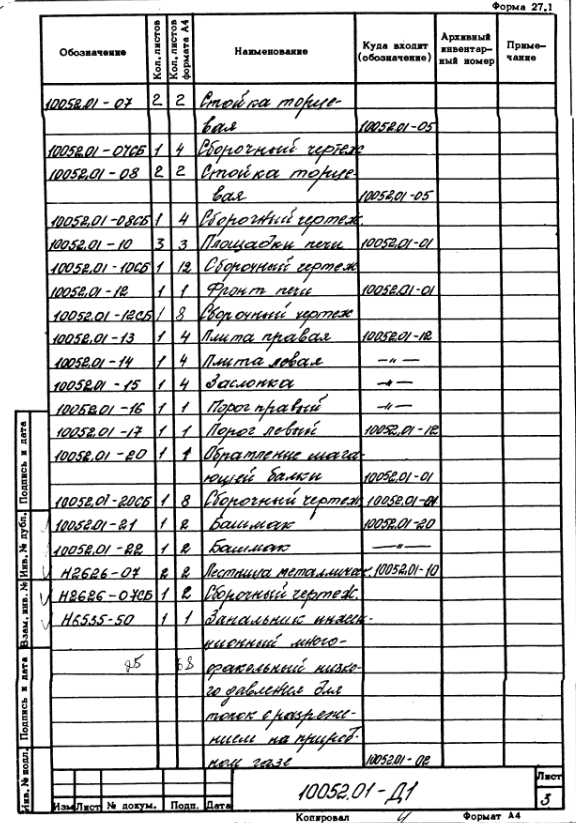 Форма 27.1
Обозначение Кол. листов Кол. листов формата А4 Наименование Куда входит (обозначение) Архивный инвентарный номер Примечание
10052.01-07 2 2 Стойка торце-
вая 10052.01-05
10052.01-07СБ 1 4 Сборочный чертеж
10052.01-08 2 2 Стойка торце-
вая 10052.01-05
10052.01-08СБ 1 4 Сборочный чертеж
10052.01-10 3 3 Площадки печи 10052.01-01
10052.01-10СБ 1 12 Сборочный чертеж
10052.01-12 1 1 Фронт печи 10052.01-01
10052.01-12СБ 1 8 Сборочный чертеж
10052.01-13 1 4 Плита правая 10052.01-12
10052.01-14 1 4 Плита левая —〃—
10052.01-15 1 4 Заслонка —〃—
10052.01-16 1 1 Порог правый —〃—
10052.01-17 1 1 Порог левый 10052.01-12
10052.01-20 1 1 Обрамление шага-
ющей балки 10052.01-01
10052.01-20СБ 1 8 Сборочный чертеж 10052.01-01
10052.01-21 1 2 Башмак 10052.01-20
10052.01-22 1 2 Башмак —〃—
Н2626-07 2 2 Лестница металличес. 10052.01-10
Н2626-07СБ 1 2 Сборочный чертеж
Н6535-50 1 1 Запальник инжек-
ционный много-
25 68 факельный низко-
го давления для
топок с разреже-
нием на природ-
ном газе 10052.01-02
Инв. № подл. Подпись и дата Взам. инв. № Инв. № дубл. Подпись и дата
Изм Лист № докум. Подп. Дата
10052.01-Д1
Лист
3
Копировал Формат А4